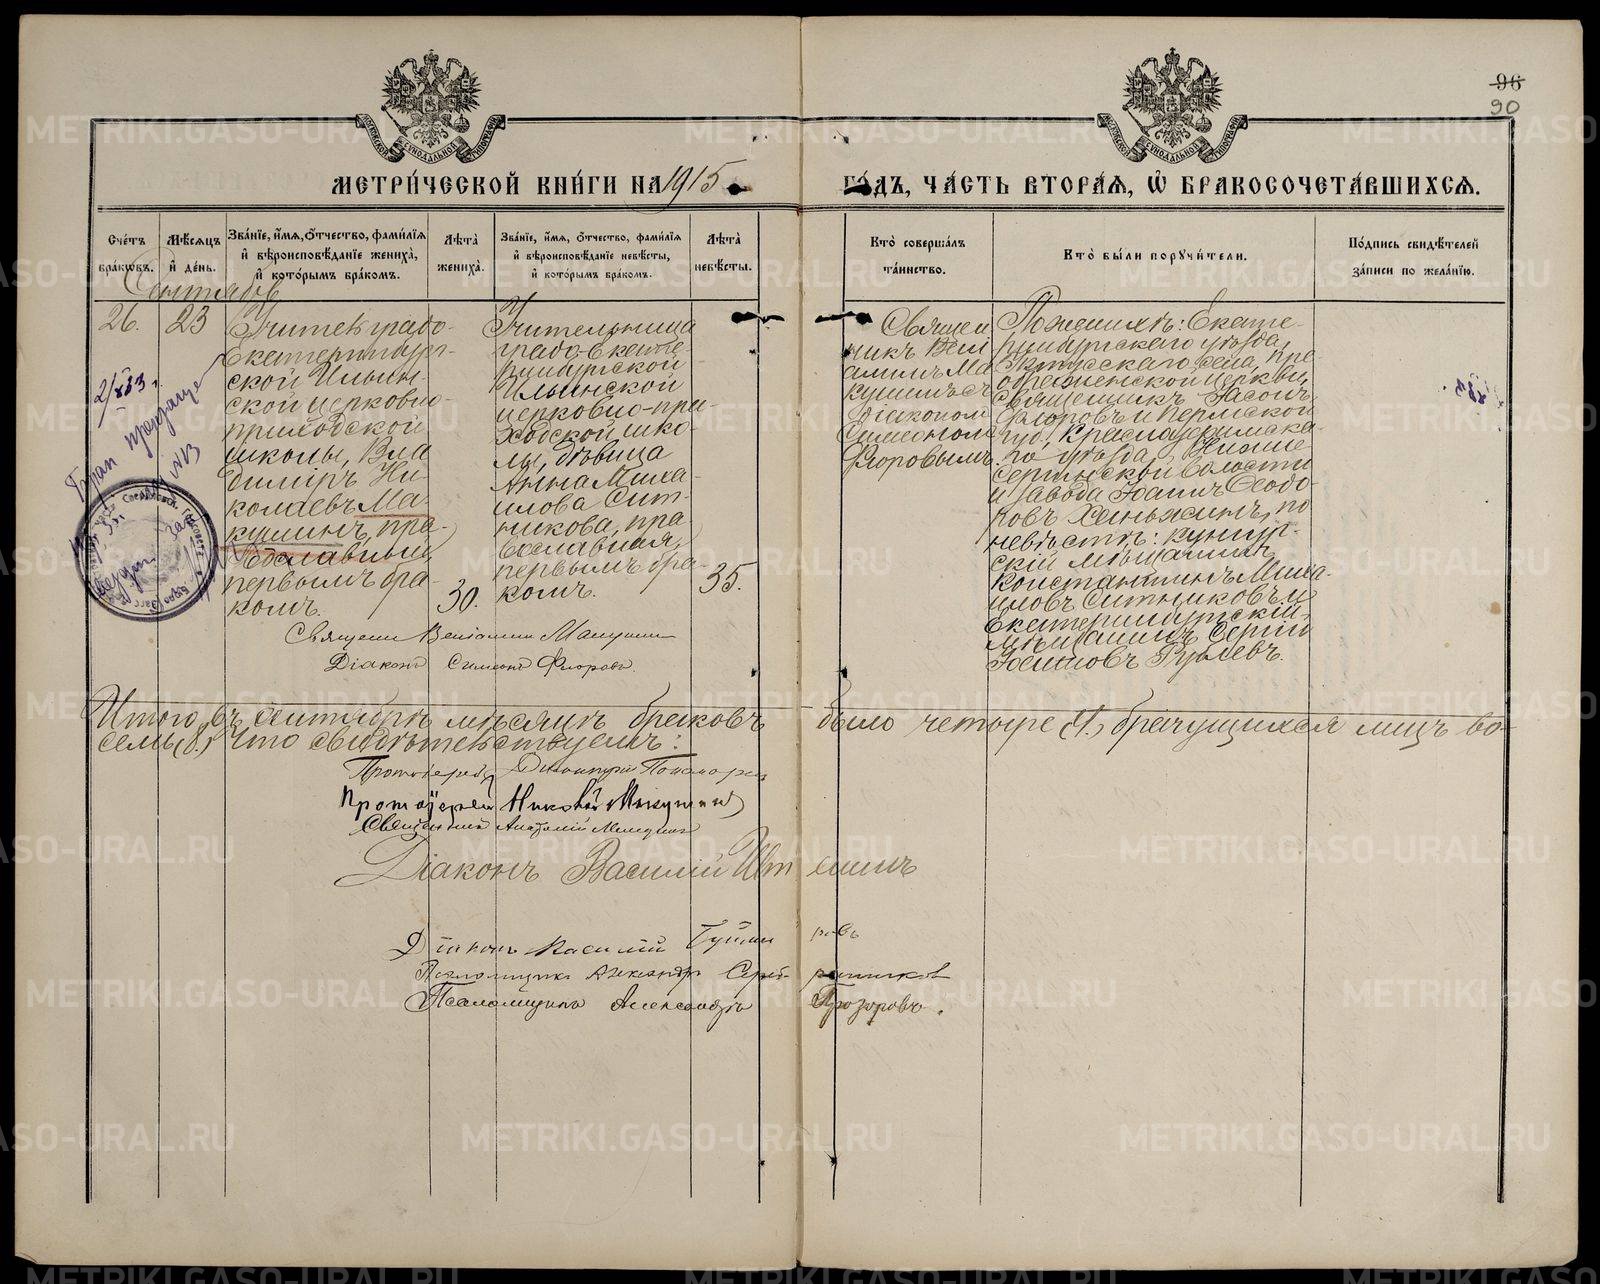 96
90
МЕТРИ́ЧЕСКОЙ КНИ́ГИ НА 1915
ГО́ДЪ, ЧА́СТЬ ВТОРА́Я, Ѡ҆ БРАКОСОЧЕТА́ВШИХСЯ.
Сче́тъ бра́ковъ.
Мѣ́сяцъ и҆ де́нь.
Зва́нїе, и҆́мя, о҆́тчество, фами́лїя и҆ вѣроисповѣ́данїе жениха̀, и҆ кото́рымъ бра́комъ.
Лѣ́та жениха̀.
Зва́нїе, и҆́мя, о҆́тчество, фами́лїя и҆ вѣроисповѣ́данїе невѣ́сты, и҆ кото́рымъ бра́комъ.
Лѣ́та невѣ́сты.
Кто̀ соверша́лъ та́инство.
Кто̀ бы́ли поручи́тели.
По́дпись свидѣ́телей за́писи по жела́нїю.
Сентябрь
26.
23
Учитель градо-
Екатеринбург-
ской Ильин-
ской церковно-
приходской
школы, Вла
димiръ Ни-
колаевъ Ма-
кушинъ, пра-
вославный,
первымъ бра-
комъ.
30.
Учительница
градо-Екате-
ринбургской
Ильинской
церковно-при-
ходской шко-
лы, дѣвица
Анна Миха-
илова Сит-
никова, пра-
вославная,
первымъ бра-
комъ.
35.
Священ
никъ Вені
аминъ Ма
кушинъ съ
діакономъ
Симеономъ
Флоровымъ.
По женихѣ: Екате-
ринбургскаго уѣзда,
села, пре-
ображенской церкви,
священникъ Іасонъ
Флоровъ и Пермской
губ. Красноуфимска-
го уѣзда, Нижне
Сергинской волости
и завода Іоаннъ Ѳеодо-
ровъ Ханьжинъ, по
невѣстѣ: кунгур-
скій мѣщанинъ
Константинъ Миха-
иловъ Ситниковъ и
Екатеринбургскій
мѣщанинъ Сергій
Іоанновъ Рублевъ.
Священ. Веніаминъ Макушин
Діаконъ Симеонъ Флоровъ.
Брак прекраще
Итого въ сентябрѣ мѣсяцѣ браковъ было четыре (4.) брачущихся лицъ во-
семь (8.) Что свидѣтельствуемъ:
Протоіерей Димитрій Пономарев
Протоіерей Николай Макушинъ
Священникъ Анатолій
Діаконъ Василій
Діаконъ Василій
Псаломщикъ Александръ Серебренников
Псаломщикъ Александръ Прозоровъ.
METRIKI.GASO-URAL.RU